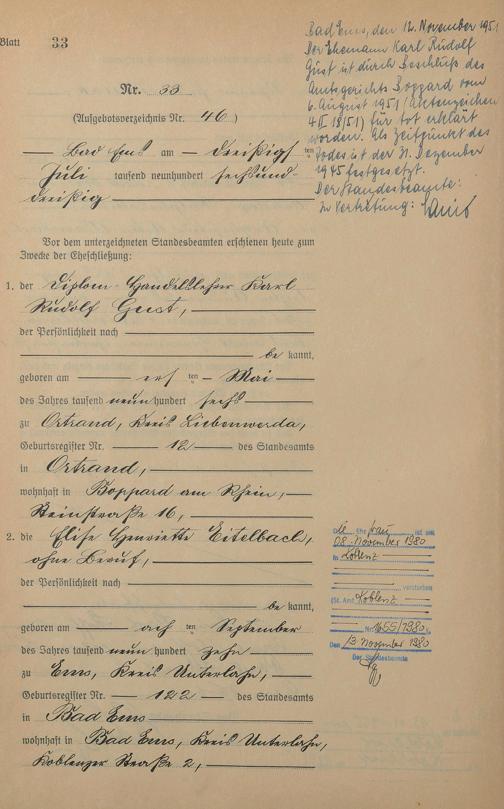 Blatt 33
Nr. 33
(Aufgebotsverzeichnis Nr. 46)
Bad Ems am dreißigsten
Juli tausend neunhundert sechsund-
dreißig
Vor dem unterzeichneten Standesbeamten erschienen heute zum
Zwecke der Eheschließung:
1. der Diplom-Handelslehrer Karl
Rudolf Gust,
der Persönlichkeit nach
be kannt,
geboren am ten Mai
des Jahres tausend neun hundert sechs
zu Ortrand, Kreis Liebenwerda,
Geburtsregister Nr. 12 des Standesamts
in Ortrand,
wohnhaft in Boppard am Rhein,
Steinstraße 16,
2. die Elise Henriette Eitelbach,
ohne Beruf,
der Persönlichkeit nach
be kannt,
geboren am ach ten September
des Jahres tausend neun hundert zehn
zu Ems, Kreis Unterlahn,
Geburtsregister Nr. 122 des Standesamts
in Bad Ems
wohnhaft in Bad Ems, Kreis Unterlahn,
Koblenzer Straße 2,
Bad Ems, den 12. November 1951
Der Ehemann Karl Rudolf
Gust ist durch Beschluß des
Amtsgerichts Boppard vom
6. August 1951 (Aktenzeichen
4 II 18/51) für tot erklärt
worden. Als Zeitpunkt des
Todes ist der 31. Dezember
1945 festgesetzt.
Der Standesbeamte:
In Vertretung:
Die Ehefrau ist am
08. November 1980
in Koblenz
verstorben
(St. Amt Koblenz
Nr. 1655/1980).
Den 13. November 1980
Der Standesbeamte